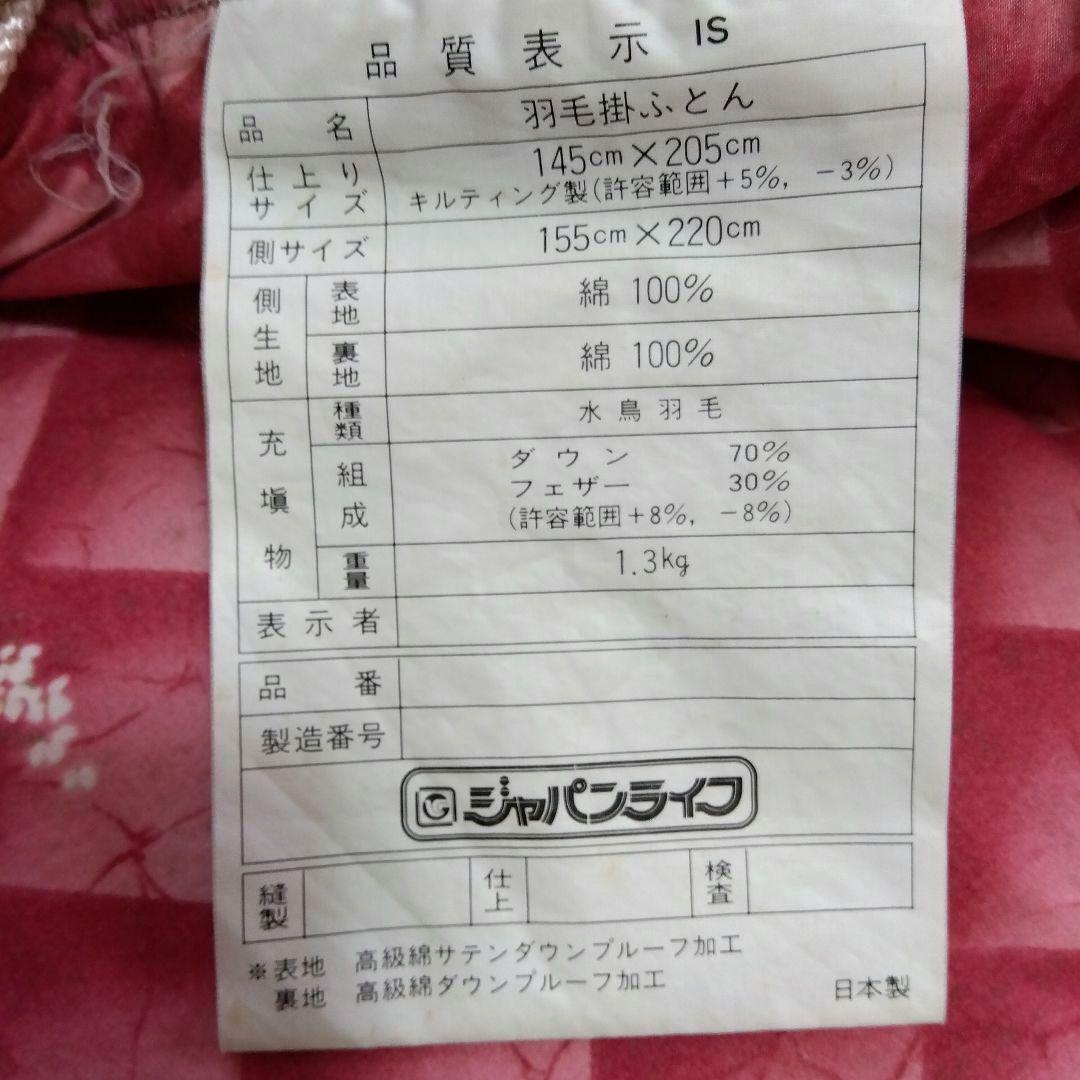 品質表示 IS
品名 羽毛掛ふとん
仕上り
サイズ
145cm×205cm
キルティング製(許容範囲+5%, -3%)
側サイズ 155cm×220cm
側生地
表地 綿 100%
裏地 綿 100%
充塡物
種類 水鳥羽毛
組成
ダウン 70%
フェザー 30%
(許容範囲+8%, -8%)
重量 1.3kg
表示者
品番
製造番号
ジャパンライフ
縫製 仕上 検査
※表地 高級綿サテンダウンプルーフ加工
裏地 高級綿ダウンプルーフ加工
日本製